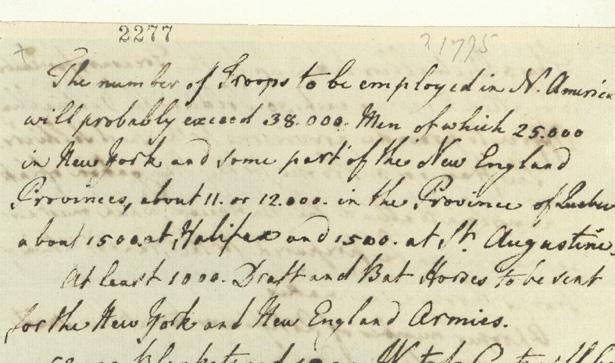 2277
? 1775
The number of Troops to be employed in N. America
will probably exceed 38.000. Men of which 25.000
in New York and some part of the New England
Provinces, about 11. or 12.000. in the Province of Quebec
about 1500. at Halifax and 1500. at St. Augustine.
At least 1000. Draft and Bat Horses to be sent
for the New York and New England Armies.